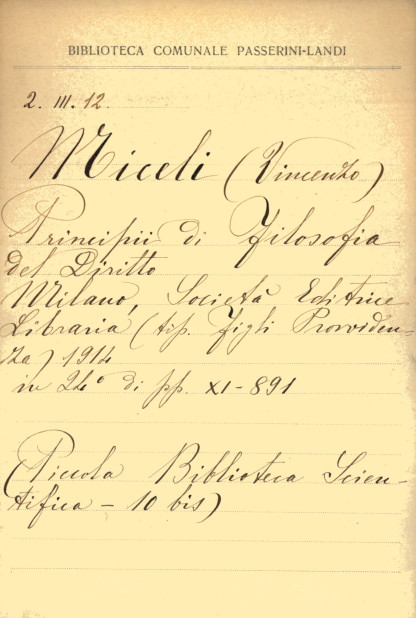 BIBLIOTECA COMUNALE PASSERINI-LANDI
2. III. 12.
Miceli (Vincenzo)
Principii di Filosofia
del Diritto
Milano, Società Editrice
Libraria (tip. Figli Provviden-
za) 1914
in 24° di pp. XI-891
(Piccola Biblioteca Scien-
tifica - 10 bis)